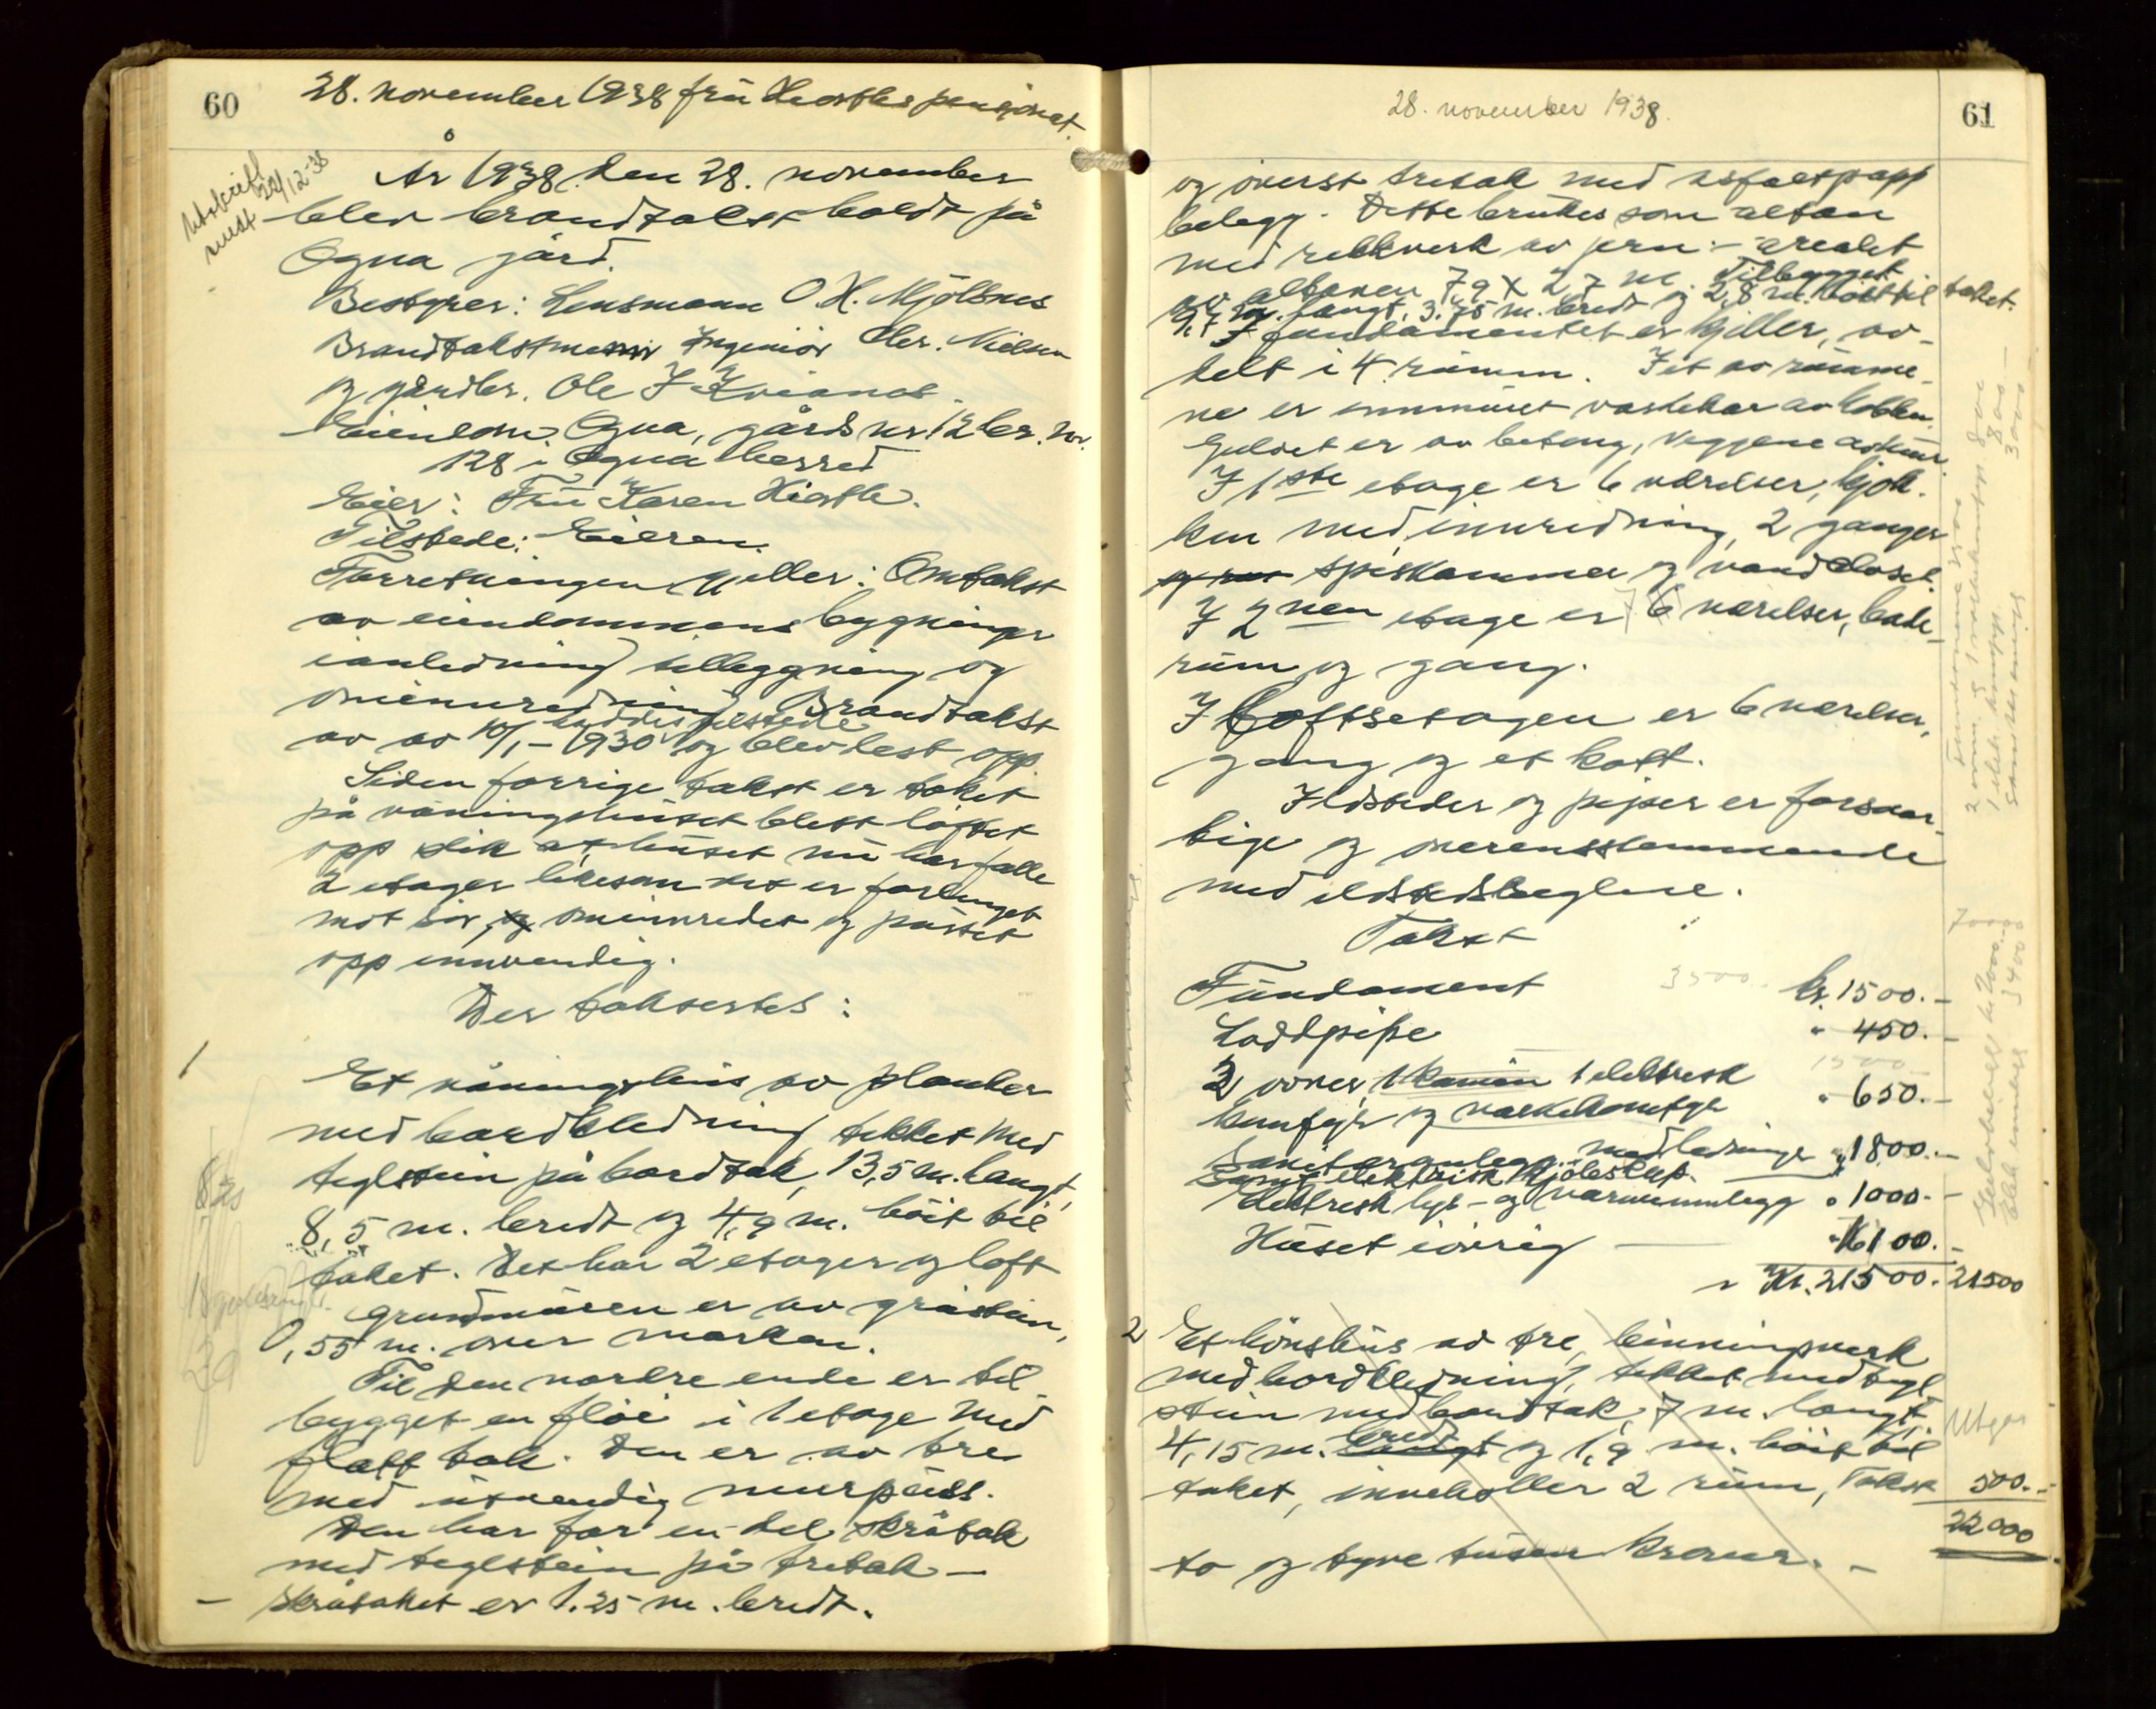 60
28. november 1938 frü Hiorths pensjonat.
Utskrift
sendt 22/12-38
År 1938 den 28. november
blev brandtakst holdt på
Ogna gård.
Bestyrer: Lensmann O. H. Mjølsnes
Brandtakstmenn Ingeniör Chr. Nielsen
og gårdbr. Ole J
Eiendom: Ogna, gårds nr 12 br. nr.
128 i Ogna herred
Eier: Frü Karen Hiorth.
Tilstede: Eieren.
Forretningen gjeller: Omtakst
av eiendommens bygninger
i anledning tilleggning og
ominnredning Brandtakst
haddes tilstede
av av 10/1-1930 og blev lest opp
Siden forrige takst er taket
på våningshüset blett löftet
opp slik at hüset nü har fulle
2 etager likesom det er forlenget
mot sör, og ominnredet og püsset
opp innvendig.
Der taksertes:
1
Et våningshüs av planker
med bordkledning tekket med
teglstein på bordtak, 13,5 m. langt,
8,5 m. bredt og 4,9 m. höit til
taket. Det har 2 etager og loft
grundmüren er av gråstein,
0,55 m. over marken.
Til den nordre ende er til
bygget en flöi i 1 etage med
flatt tak. Den er av tre
med ütvendig mürpüss.
Den har for en del skråtak
med teglstein på tretak –
– skråtaket er 1.25 m. bredt.
28. november 1938.
61
og överst tretak med asfaltpapp
belegg. Dette brukes som altan
med rekkverk av jern. – arealet
av altanen 7,9 x 2,7 m. Tilbygget
9,4 m. langt, 3.75 m. bredt og 2,8 m. höit til taket.
I fundamentet er kjeller, av-
delt i 4 rümm. I et av rümme-
ne er innmüret vaskekar av kobber.
Gulvet er av betong, veggene avpüsset.
I 1ste etage er 6 værelser, kjök-
ken med innredning, 2 ganger
spiskammer og vandclosett.
I 2nen etage er 7 6 værelser, bade-
rüm og gang.
I Loftsetagen er 6 værelser,
gang og et loft.
Ildsteder og pipjer er forsvar-
lige og overensstemmende
med ildstedsreglene.
Takst
Fündament 3500. kr. 1500.–
Loddpipe " 450.–
2 ovner, 1 kamin 1 elektrisk
komfyr og vaskekomfyr " 650.–
Sanitæranlegg med ledninger " 1800.–
Samt elektrisk kjöleskap.
Elektrisk lys- og varmeinnlegg " 1000.–
Hüset iövrig " 16100.–
Kr. 21500.– 21500
2 Et hönsehüs av tre, binningsverk
med bordkledning, tekket med tegl-
stein med bordtak, 7 m. langt,
bredt
4,15 m. langt og 1,9 m. höit til
taket, inneholler 2 rüm, Takst 500.–
Utgår
22000
to og tyve tüsen kroner. –